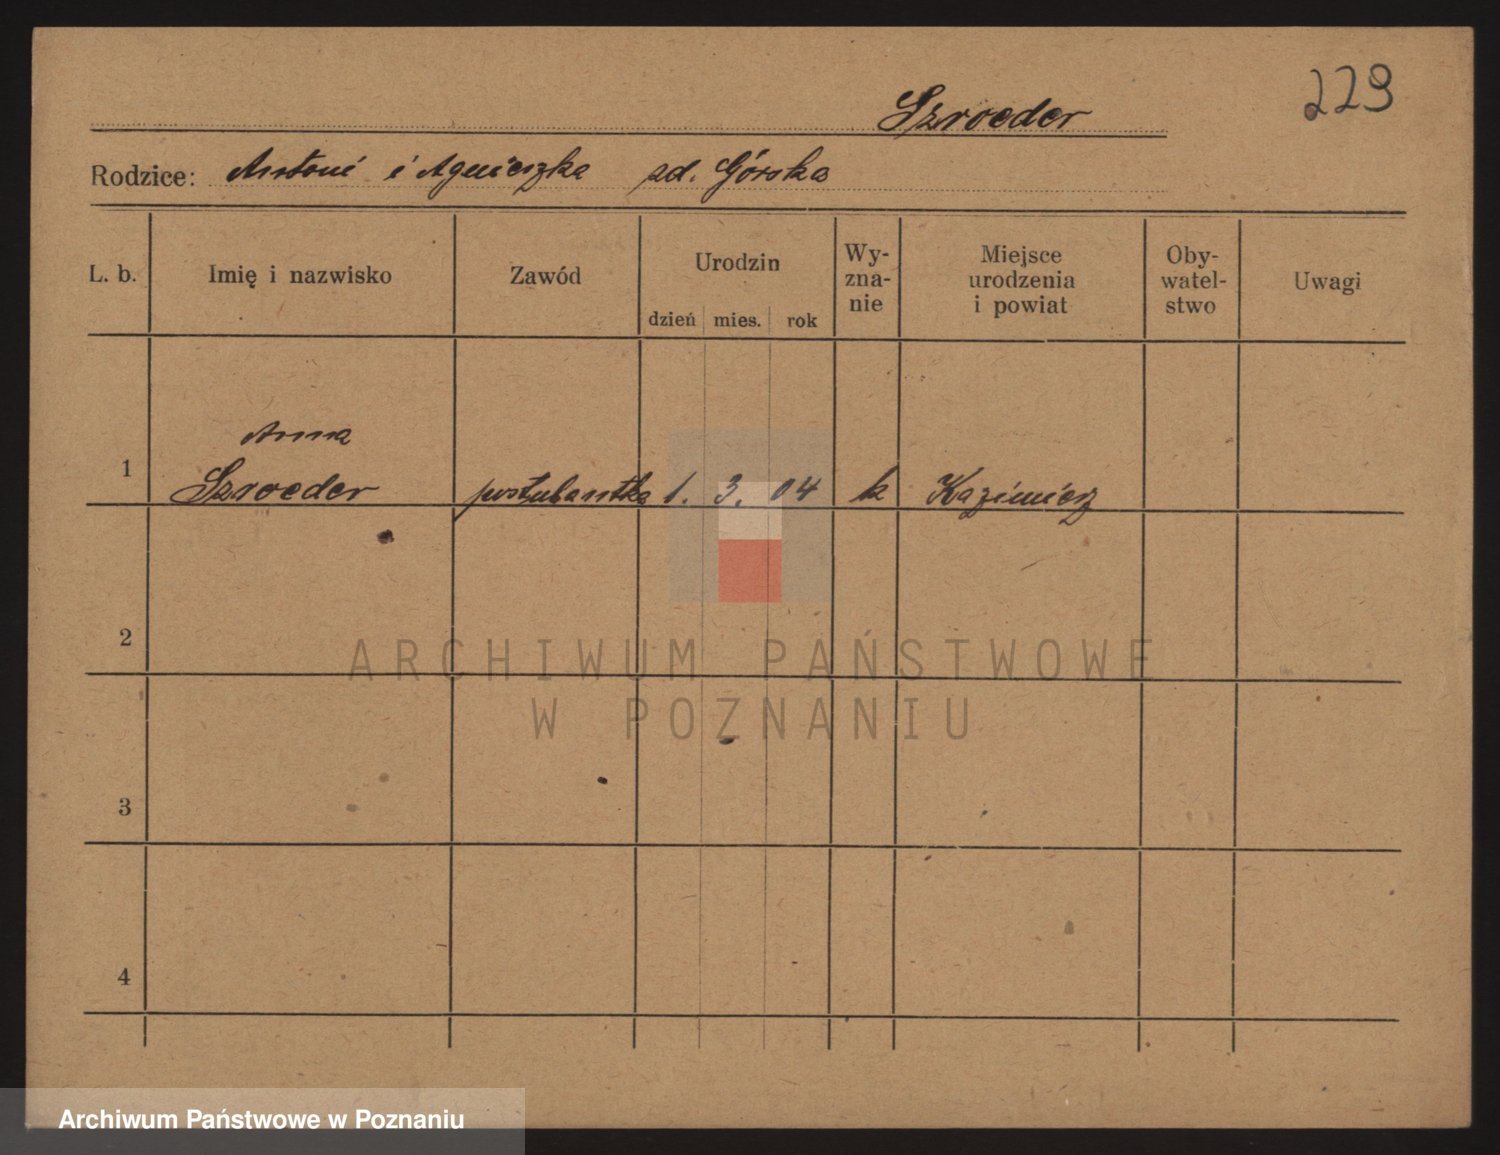 229
Szroeder
Rodzice: Antoni i Agnieszka zd. Górska
L. b. Imię i nazwisko Zawód Urodzin dzień mies. rok Wy-zna-nie Miejsce urodzenia i powiat Oby-watel-stwo Uwagi
Anna
1 Szroeder postulantka 1. 3. 04 k Kazimierz
2
ARCHIWUM PAŃSTWOWE
W POZNANIU
3
4
Archiwum Państwowe w Poznaniu